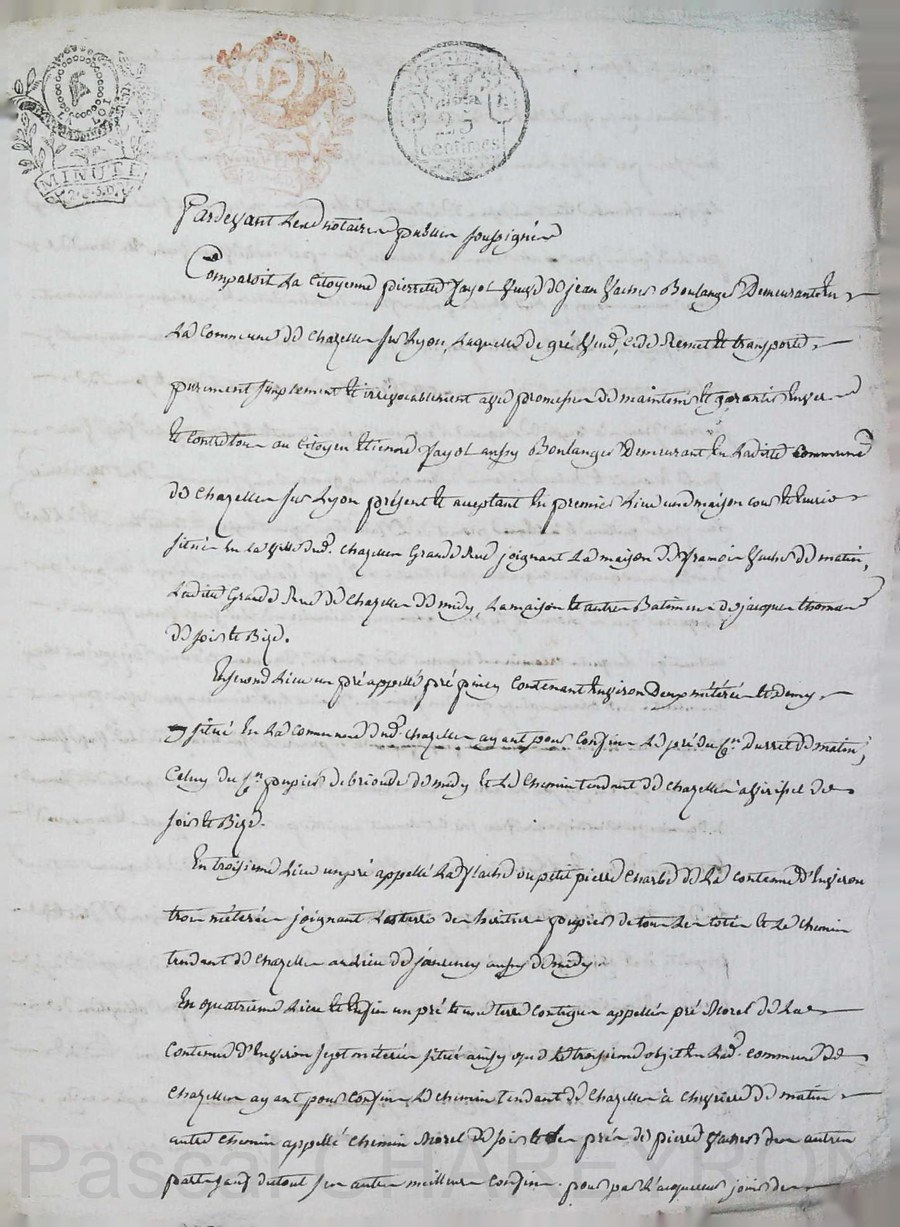 MINUTE
25
centimes
Pardevant Les notaires publics soussignés
Comparoit La Citoyenne pierrette fayol veuve de jean Vacher Boulanger Demeurante en
La Commune de Chazelles sur Lyon, Laquelle de gré vend, cede Remet et transporte
purement simplement et irrévocablement avec promesse de maintenir et garantir Envers
et Contre tous au Citoyen Etienne fayol aussy Boulanger Demeurant en Ladite Commune
de Chazelles sur Lyon présent et acceptant En premier Lieu une maison cour et Ecurie
située En la ville dud. Chazelles Grande Rue joignant La maison de francois Vacher de matin,
Ladite Grande Rue de Chazelles de midy, La maison et autres Batimens de jacques thomas
de soir et Bize.
En second Lieu un pré appellé pré piney Contenant Environ deux méterées et demy
situé En La Commune dud. Chazelles ayant pour Confins Le pré du Cn. Durret de matin,
Celuy du Cn. pupier de brioude de midy et Le Chemin tendant de Chazelles à Viricel de
soir et Bize.
En troisieme Lieu un pré appellé La du petit pierre Charbe de La Contenue d'Environ
trois méterées joignant La terre des héritiers pupier de tous Les cotés et Le Chemin
tendant de Chazelles au Lieu de aussy de midy.
En quatrieme Lieu et Enfin un pré et une terre Contigus appellés pré Morel de La
Contenue d'Environ sept méterées situés ainsy que Le troisieme objet En Lad. commune de
Chazelles ayant pour Confins Le chemin tendant de Chazelles à Chevrieres de matin
autre Chemin appellé Chemin Morel de soir et Les prés de pierre Vacher des autres
parts sauf du tout ses autres meilleurs Confins. pour par L'acquereur jouir de
Pascal CHAREYRON